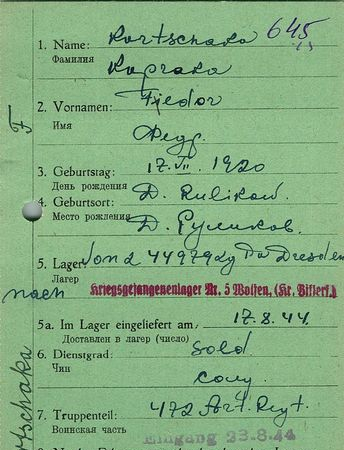 645
1. Name: Kortschaka
Фамилия
2. Vornamen: Fiedor
Имя
3. Geburtstag: 17. VII. 1920
День рождения
4. Geburtsort: D. Rulikow.
Место рождения Д. Руликов.
5. Lager: Von
Лагер
Dresden
nach Kriegsgefangenenlager Nr. 5 Wolfen, (Kr. Bitterf.)
5a. Im Lager eingeliefert am 17.8.44.
Доставлен в лагер (число)
6. Dienstgrad: Sold
Чин
7. Truppenteil: 472 Art. Regt.
Воинская часть
Eingang 23.8.44
F